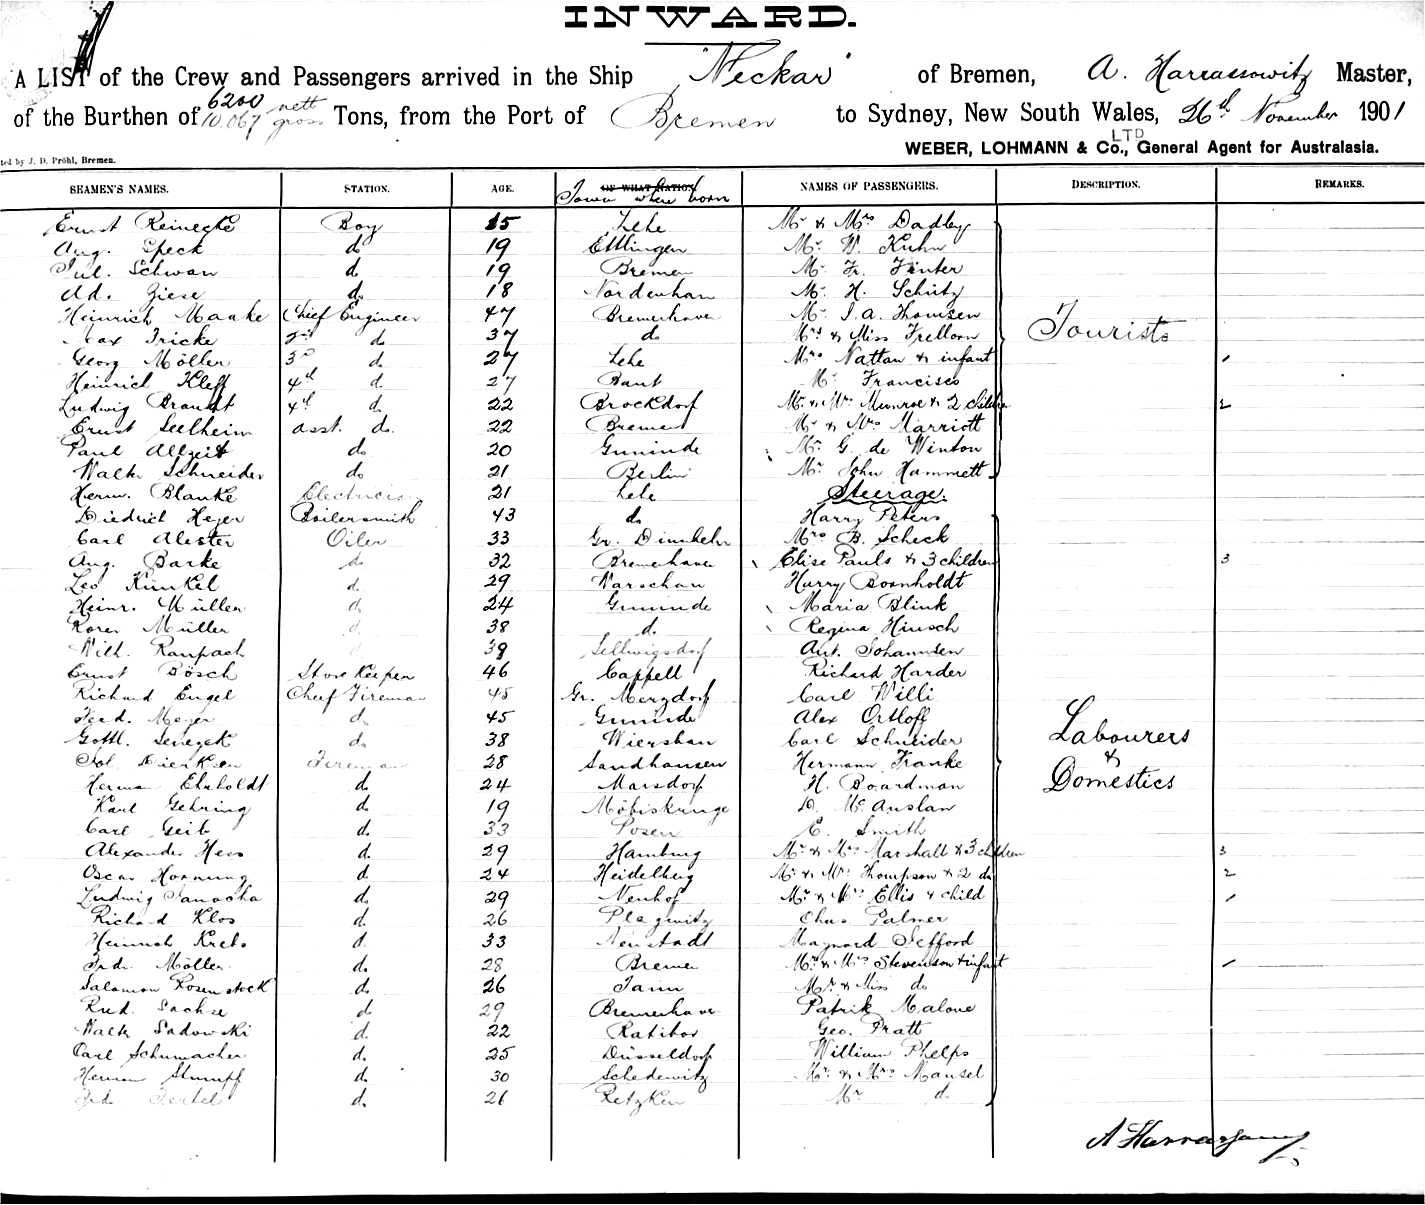 INWARD.
A LIST of the Crew and Passengers arrived in the Ship "Neckar" of Bremen, A. Harrassowitz Master,
of the Burthen of 6200 nett 10,067 gross Tons, from the Port of Bremen to Sydney, New South Wales, 26th November 1901
WEBER, LOHMANN & Co., LTD General Agent for Australasia.
ted by J. D. Pröhl, Bremen.
SEAMEN'S NAMES. STATION. AGE. OF WHAT NATION Town where born NAMES OF PASSENGERS. DESCRIPTION. REMARKS.
Ernst Reinecke Boy 15 Lehe Mr & Mrs Dadley
Aug. Speck do 19 Ettlingen Mr. W. Kuhn
Jul. Schwan do 19 Bremen Mr. Fr. Finter
Ad. Ziese do 18 Nordenham Mr. H. Schütz
Heinrich Maake Chief Engineer 47 Bremerhaven Mr. J. A. Thomsen
Max Fricke 2nd do 37 do Mrs & Miss Trelloon Tourists
Georg Möller 3d do 27 Lehe Mrs Nattan & infant 1
Heinrich Kleff 4th d. 27 Bant Mr. Francisco
Ludwig Brandt 4th d. 22 Brockdorf Mr. & Mrs Munroe & 2 children 2
Ernst Seelheim asst. do. 22 Bremen Mr & Mrs Marriott
Paul Allzeit do 20 Mr. G. de Winton
Walter Schneider do 21 Berlin Mr John Hammett
Herm. Blanke Electrician 21 Lehe Steerage.
Diedrich Heyer Boilersmith 43 do Harry Peters
Carl Alester Oiler 33 Gr. Mrs B. Scheck
Aug. Barke do 32 Bremerhaven Elise Pauls & 3 children 3
Leo Künkel d. 29 Warschau Harry Bornholdt
Heinr. Müller d. 24 Maria Blink
Müller d. 38 d. Regina Hinsch
Wilh. Raupach 39 Ant. Johannsen
Ernst Bösch Store Keeper 46 Cappell Richard Harder
Richard Engel Chief Fireman 45 Gr. Merzdorf Carl Willi
Ferd. Meyer d. 45 Alex Ortloff
Gottl. d. 38 Carl Schneider Labourers
Dierksen Fireman 28 Sandhausen Hermann Franke &
Herman Ehrholdt d. 24 Marsdorf H. Boardman Domestics
Karl Gehring d. 19 D. McAuslan
Carl Geib d. 33 Posen E. Smith
Alexander Hess d. 29 Hamburg Mr & Mrs Marshall & 3 children 3
Oscar Hornung d. 24 Heidelberg Mr & Mrs Thompson & 2 do 2
Ludwig d. 29 Neuhof Mr & Mrs Ellis & child 1
Richard Klos d. 26 Plagwitz Chas Palmer
Heinrich Krebs d. 33 Neustadt Maynard Sefford
Möller d. 28 Bremen Mr & Mrs Stevenson & infant 1
Salomon Rosenstock d. 26 Tann Mr & Miss do
Rud. Sachse d. 29 Bremerhaven Patrik Malone
Walter Sadowski d. 22 Ratibor Geo. Pratt
Carl Schumacher d. 25 Düsseldorf William Phelps
Herman Stumpf d. 30 Schedewitz Mr. & Mrs Mansel
d. 26 Mr d.
A Harrassowitz